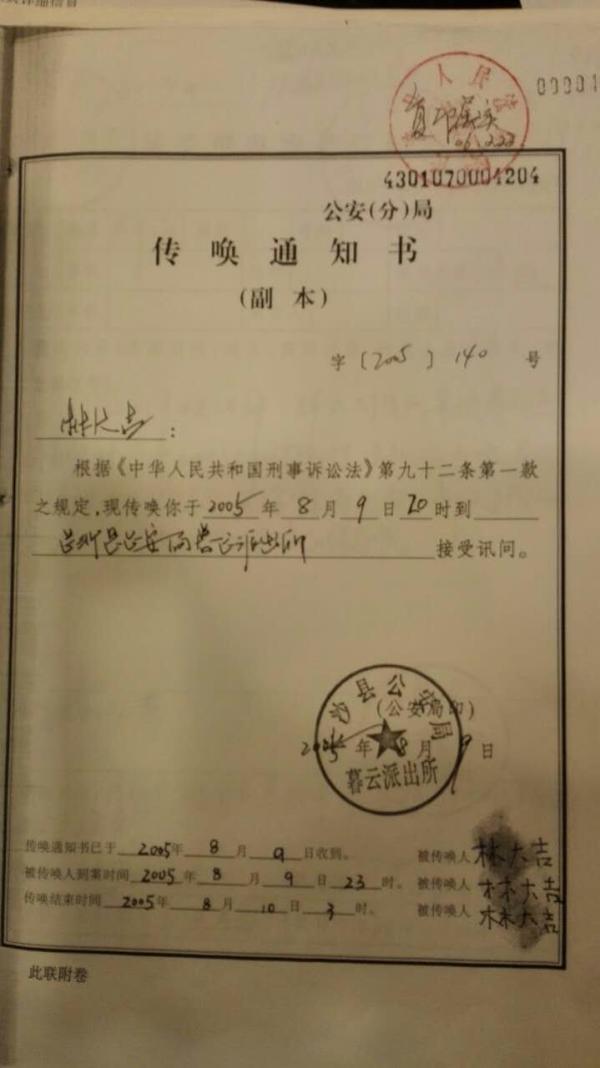 00001
人民
复印属实
06.2.22
4301070004204
公安(分)局
传唤通知书
(副本)
字〔2005〕140号
林大吉：
根据《中华人民共和国刑事诉讼法》第九十二条第一款
之规定,现传唤你于2005年8月9日20时到
长沙县公安局暮云派出所 接受讯问。
长沙县公安局
(公安局印)
2005年8月9日
暮云派出所
传唤通知书已于2005年8月9日收到。 被传唤人 林大吉
被传唤人到案时间2005年8月9日23时。 被传唤人 林大吉
传唤结束时间2005年8月10日3时。 被传唤人 林大吉
此联附卷